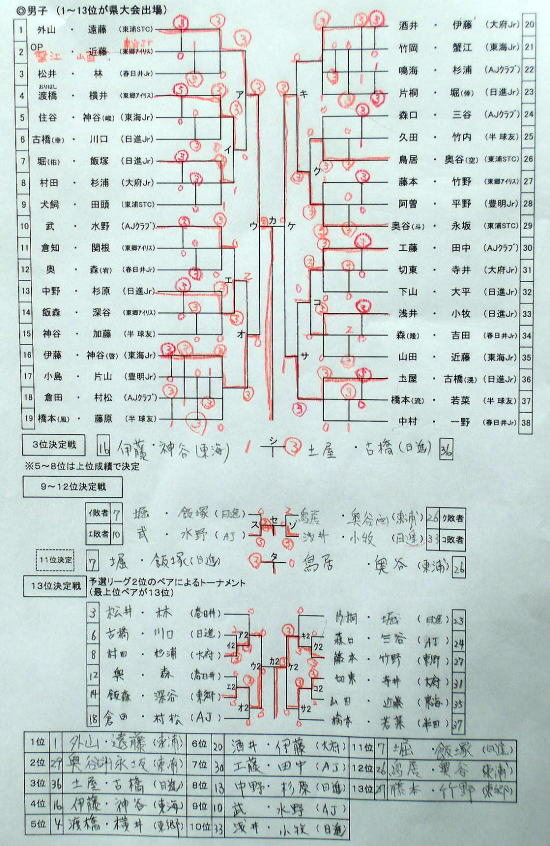 ◎男子 (1～13位が県大会出場)
1 外山 ・ 遠藤 (東浦STC)
OP
2 ・ 近藤 (東郷アイリス)
3 松井 ・ 林 (春日井Jr)
4 渡橋 ・ 横井 (東郷アイリス)
5 住谷 ・ 神谷(峻) (東海Jr)
6 古橋(幸) ・ 川口 (日進Jr)
7 堀(佑) ・ 飯塚 (日進Jr)
8 村田 ・ 杉浦 (大府Jr)
9 犬飼 ・ 田頭 (東浦STC)
10 武 ・ 水野 (AJクラブ)
11 倉知 ・ 関根 (東郷アイリス)
12 奥 ・ 森(岩) (春日井Jr)
13 中野 ・ 杉原 (日進Jr)
14 飯森 ・ 深谷 (東郷アイリス)
15 神谷 ・ 加藤 (半球友)
16 伊藤 ・ 神谷(啓) (東海Jr)
17 小島 ・ 片山 (豊明Jr)
18 倉田 ・ 村松 (AJクラブ)
19 橋本(風) ・ 藤原 (半球友)
酒井 ・ 伊藤 (大府Jr) 20
竹岡 ・ 蟹江 (東海Jr) 21
鳴海 ・ 杉浦 (AJクラブ) 22
片桐 ・ 堀(倖) (日進Jr) 23
森口 ・ 三谷 (AJクラブ) 24
久田 ・ 竹内 (半球友) 25
鳥居 ・ 奥谷(空) (東浦STC) 26
藤本 ・ 竹野 (東郷アイリス) 27
阿曽 ・ 平野 (豊明Jr) 28
奥谷(斗) ・ 永坂 (東浦STC) 29
工藤 ・ 田中 (AJクラブ) 30
切東 ・ 寺井 (大府Jr) 31
下山 ・ 大平 (日進Jr) 32
浅井 ・ 小牧 (日進Jr) 33
森(隆) ・ 吉田 (春日井Jr) 34
山田 ・ 近藤 (東海Jr) 35
土屋 ・ 古橋(滉) (日進Jr) 36
橋本(流) ・ 若菜 (半球友) 37
中村 ・ 一野 (春日井Jr) 38
3位決定戦 16 伊藤・神谷(東海) 1 シ ③ 土屋 ・ 古橋(日進) 36
※5～8位は上位成績で決定
9～12位決定戦
イ敗者 7 堀 ・ 飯塚(日進) ス セ ソ 鳥居 ・ 奥谷(東浦) 26 ク敗者
エ敗者 10 武 ・ 水野(AJ) 浅井 ・ 小牧(日進) 33 コ敗者
11位決定戦 7 堀 ・ 飯塚(日進) ③ タ 鳥居 ・ 奥谷(東浦) 26
13位決定戦 予選リーグ2位のペアによるトーナメント
(最上位ペアが13位)
3 松井 ・ 林 (春日井)
6 古橋 ・ 川口 (日進)
8 村田 ・ 杉浦 (大府)
12 奥 ・ 森 (春日井)
14 飯森 ・ 深谷 (東郷)
18 倉田 ・ 村松 (AJ)
片桐 ・ 堀 (日進) 23
森口 ・ 三谷 (AJ) 24
藤本 ・ 竹野 (東郷) 27
切東 ・ 寺井 (大府) 31
山田 ・ 近藤 (東海) 35
橋本 ・ 若菜 (半田) 37
1位 1 外山・遠藤(東浦) 6位 20 酒井・伊藤(大府) 11位 7 堀 ・ 飯塚(日進)
2位 29 奥谷・永坂(東浦) 7位 30 工藤・田中(AJ) 12位 26 鳥居・奥谷(東浦)
3位 36 土屋・古橋(日進) 8位 13 中野・杉原(日進) 13位 27 藤本・竹野(東郷)
4位 16 伊藤・神谷(東海) 9位 10 武 ・ 水野(AJ)
5位 4 渡橋・横井(東郷) 10位 33 浅井・小牧(日進)